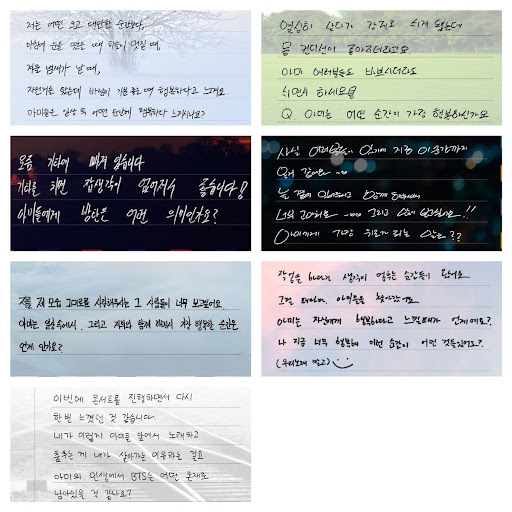 저는 어떤 크고 대단한 순간보다,
아침에 눈을 떴을 때 하늘이 맑을 때,
겨울 냄새가 날 때,
자전거를 탔는데 바람이 기분 좋을 때 행복하다고 느껴요.
아미들은 일상 속 어떤 순간에 행복하다 느끼시나요?
열심히 살다가 강제로 쉬게 됐는데
몸 컨디션이 좋아지더라고요
아미 여러분들도 바쁘시더라도
쉬면서 하세요
Q. 아미는 어떤 순간이 가장 행복하신가요
요즘 기타에 빠져 있습니다
기타를 치면 잡생각이 없어져서 좋습니다!
아미들에게 방탄은 어떤 의미인가요?
사실 여러분들 지금 이 순간까지
늘 곁에 함께
너무 그리고 너무 보고싶어요!!
아미에게 가장 위로가 되는 말은??
제 모습 그대로를 사랑해주시는 그 사람들이 너무 보고싶어요
아미는 일상속에서, 그리고 저희와 함께 하면서 가장 행복한 순간은
언제 인가요?
작업을 하다가 생각이 멈추는 순간들이 있어요.
그럴 때마다, 아미들을 찾아갔어요.
아미는 자신에게 행복하다고 느낄때가 언제에요?
나 지금 너무 행복해 이런 순간이 어떤 것들일까요?
(우리노래 말고)
이번에 콘서트를 진행하면서 다시
한번 느꼈던 것 같습니다.
내가 이렇게 아미들 앞에서 노래하고
춤추는 게 내가 살아가는 이유라는 걸요
아미의 인생에서 BTS는 어떤 존재로
남아있을 것 같나요?